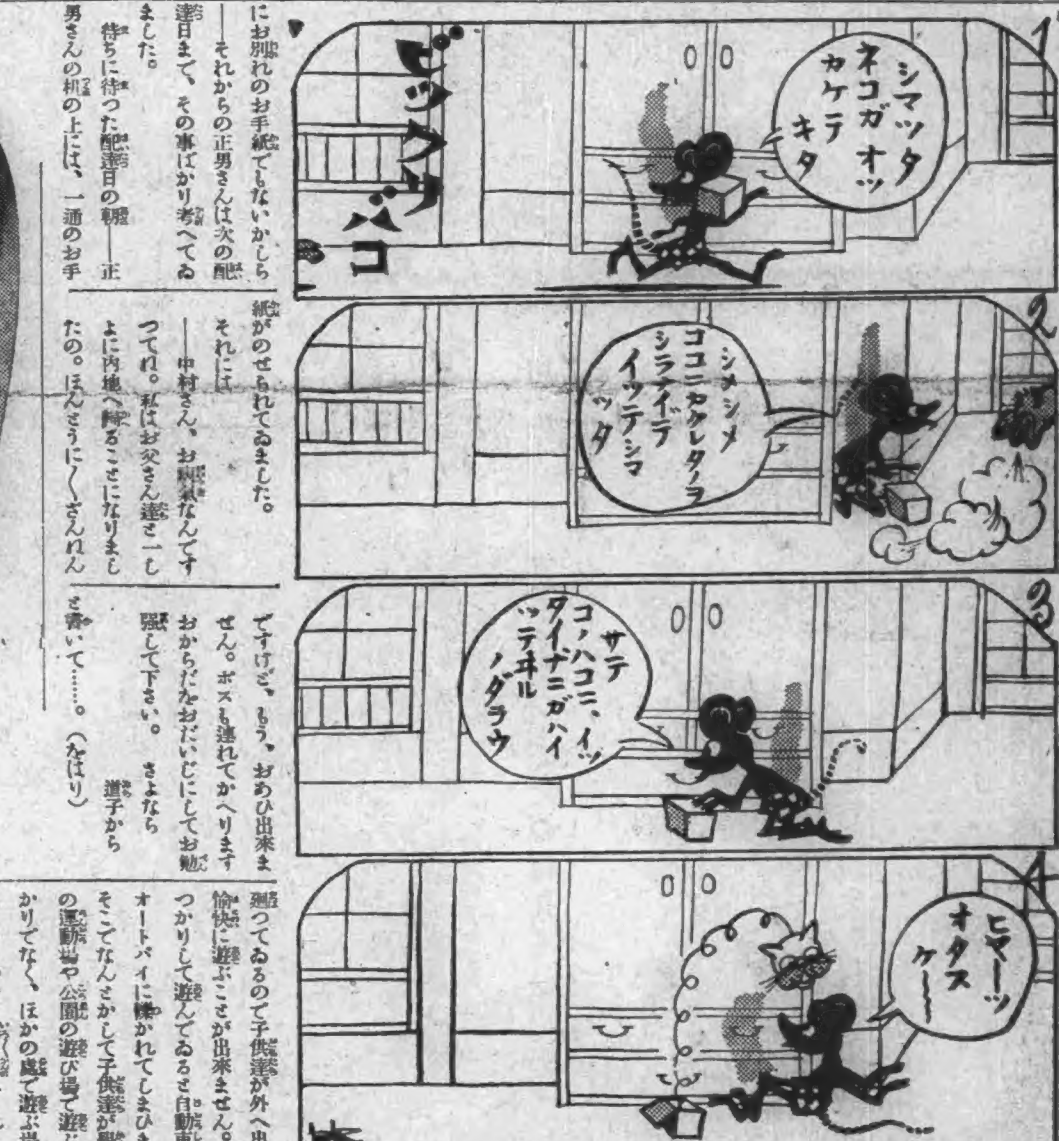 ビックリバコ
1
シマツタ
ネコガ オツ
カケテ
キタ
2
シメシメ
ココニカクレタノヲ
シラナイデ
イツテシマ
ツタ
3
サテ
コノハコニ、イツ
タイナニガハイ
ツテヰル
ノダラウ
4
ヒヤーツ
オタス
ケー
にお別れのお手紙でもないかしら
――それからの正男さんは次の配
達日まで、その事ばかり考へてゐ
ました。
待ちに待つた配達日の朝――正
男さんの机の上には、一通のお手
紙がのせられてゐました。
それには
――中村さん、お病氣なんです
つてね。私はお父さん達と一し
よに内地へ歸ることになりまし
たの。ほんたうに〱ざんねん
ですけど、もう、おあひ出來ま
せん。ボスも連れてかへります
おからだをおだいじにしてお勉
强して下さい。 さよなら
道子から
と書いて……。(をはり)
廻つてゐるので子供達が外へ出
愉快に遊ぶことが出來ません。
つかりして遊んでゐると自動車
オートバイに轢かれてしまひま
そこでなんとかして子供達が
の運動場や公園の遊び場で遊ぶ
かりでなく、ほかの處で遊ぶ